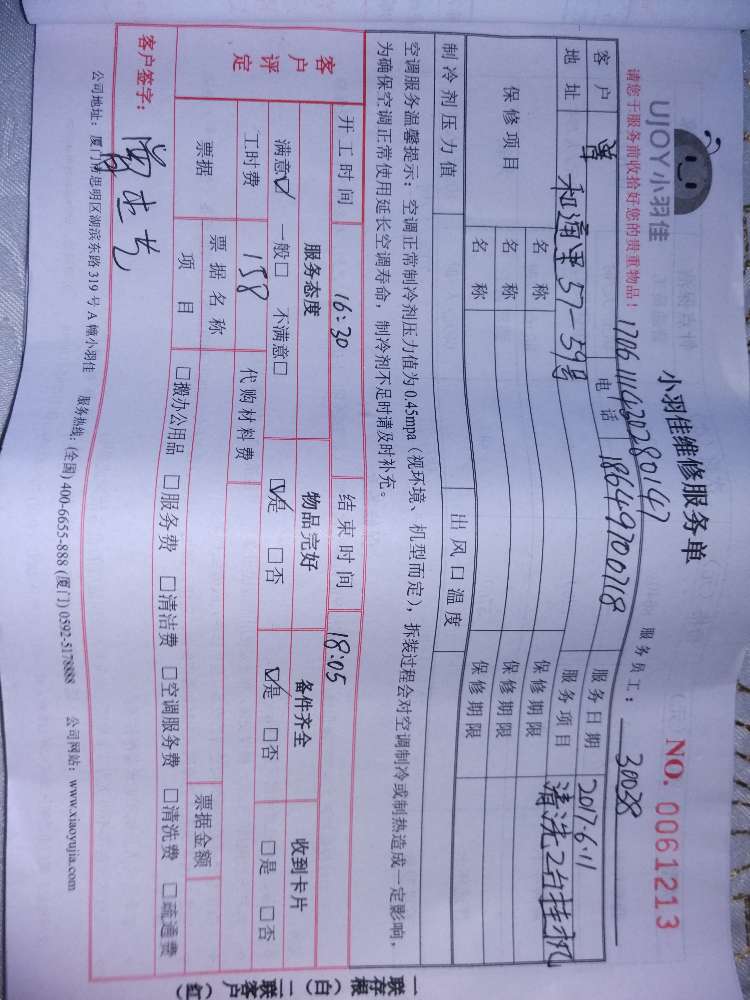 UJOY小羽佳
小羽佳维修服务单
NO. 0061213
请您于服务前收拾好您的贵重物品！
1706111420280147
服务员工： 30028
客户
电话 18649700718
服务日期 2017.6.11
地址 和通里57-59号
服务项目 清洗2台挂机
保修项目
名称 保修期限
名称 保修期限
名称 保修期限
制冷剂压力值 出风口温度
空调服务温馨提示：空调正常制冷剂压力值为0.45mpa（视环境、机型而定），拆装过程会对空调制冷或制热造成一定影响，
为确保空调正常使用延长空调寿命，制冷剂不足时请及时补充。
开工时间 16:30 结束时间 18:05
客户评定
服务态度 物品完好 备件齐全 收到卡片
满意☑ 一般□ 不满意□ ☑是 □否 ☑是 □否 □是 □否
工时费 158 代购材料费
票据 票据名称 票据金额
项目 □搬办公用品 □服务费 □清洁费 □空调服务费 □清洗费 □疏通费
客户签字：
公司地址：厦门市思明区湖滨东路319号A幢小羽佳 服务热线：(全国) 400-6655-888 (厦门) 0592-5178888 公司网站：www.xiaoyujia.com
一联存根（白）二联客户（红）